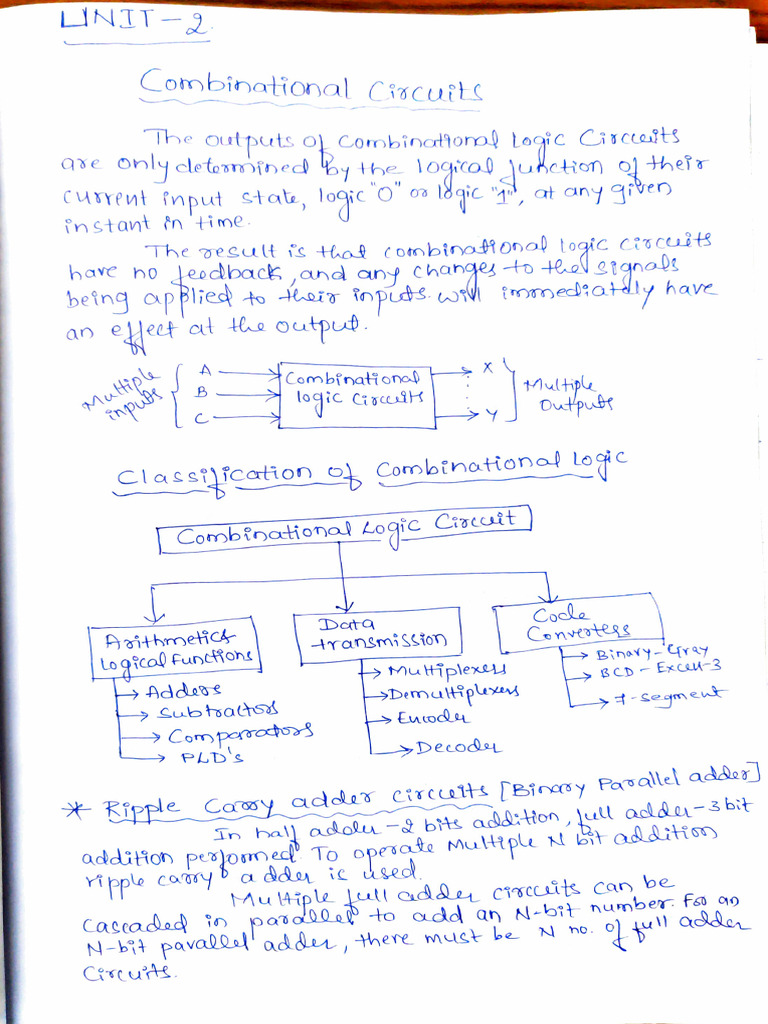 UNIT-2.
Combinational Circuits
The outputs of Combinational Logic Circuits
are only determined by the logical function of their
current input state, logic "0" or logic "1", at any given
instant in time.
The result is that combinational logic circuits
have no feedback, and any changes to the signals
being applied to their inputs will immediately have
an effect at the output.
Multiple inputs
A
B
C
Combinational
logic Circuits
X
Y
Multiple
Outputs
Classification of Combinational Logic
Combinational Logic Circuit
Arithmetics
Logical Functions
Adders
Subtractors
Comparators
PLD's
Data
transmission
Multiplexers
Demultiplexers
Encoder
Decoder
Code
Converters
Binary-Gray
BCD-Excell-3
7-segment
* Ripple Carry adder circuits [Binary Parallel adder]
In half adder-2 bits addition, full adder-3 bit
addition performed. To operate Multiple N bit addition
ripple carry adder is used.
Multiple full adder circuits can be
cascaded in parallel to add an N-bit number. For an
N-bit parallel adder, there must be N no. of full adder
Circuits.